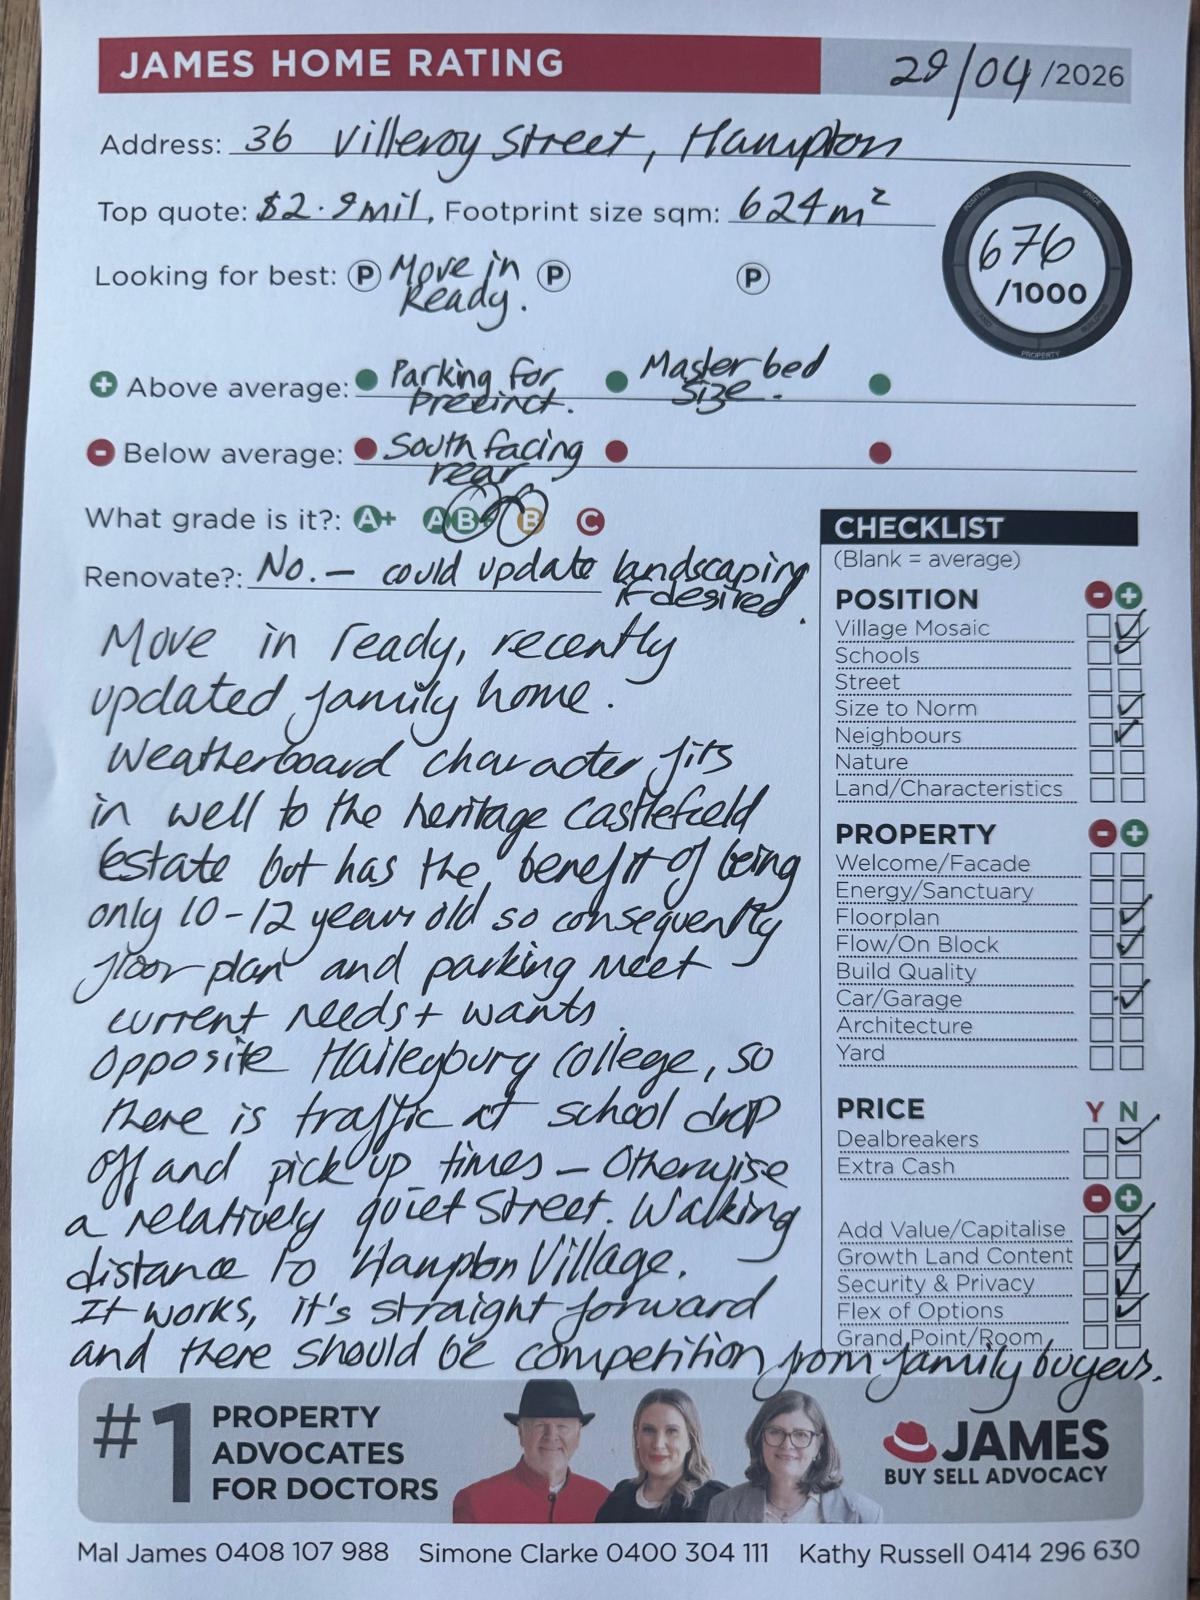 JAMES HOME RATING 29/04/2026
Address: 36 Villeroy Street, Hampton
Top quote: $2.9mil, Footprint size sqm: 624m²
676
/1000
POSITION PRICE LAND BUILDING PROPERTY
Looking for best: P Move in Ready. P P
+ Above average: Parking for precinct. Master bed size.
- Below average: South facing rear
What grade is it?: A+ A B+ B C
Renovate?: No. – could update landscaping if desired.
Move in ready, recently
updated family home.
Weatherboard character fits
in well to the heritage Castlefield
Estate but has the benefit of being
only 10-12 years old so consequently
floor plan and parking meet
current needs + wants.
Opposite Haileybury College, so
there is traffic at school drop
off and pick up times – Otherwise
a relatively quiet Street. Walking
distance to Hampton Village.
It works, it's straight forward
and there should be competition from family buyers.
CHECKLIST
(Blank = average)
POSITION - +
Village Mosaic
Schools
Street
Size to Norm
Neighbours
Nature
Land/Characteristics
PROPERTY - +
Welcome/Facade
Energy/Sanctuary
Floorplan
Flow/On Block
Build Quality
Car/Garage
Architecture
Yard
PRICE Y N
Dealbreakers
Extra Cash
- +
Add Value/Capitalise
Growth Land Content
Security & Privacy
Flex of Options
Grand Point/Room
#1 PROPERTY
ADVOCATES
FOR DOCTORS
JAMES
BUY SELL ADVOCACY
Mal James 0408 107 988 Simone Clarke 0400 304 111 Kathy Russell 0414 296 630